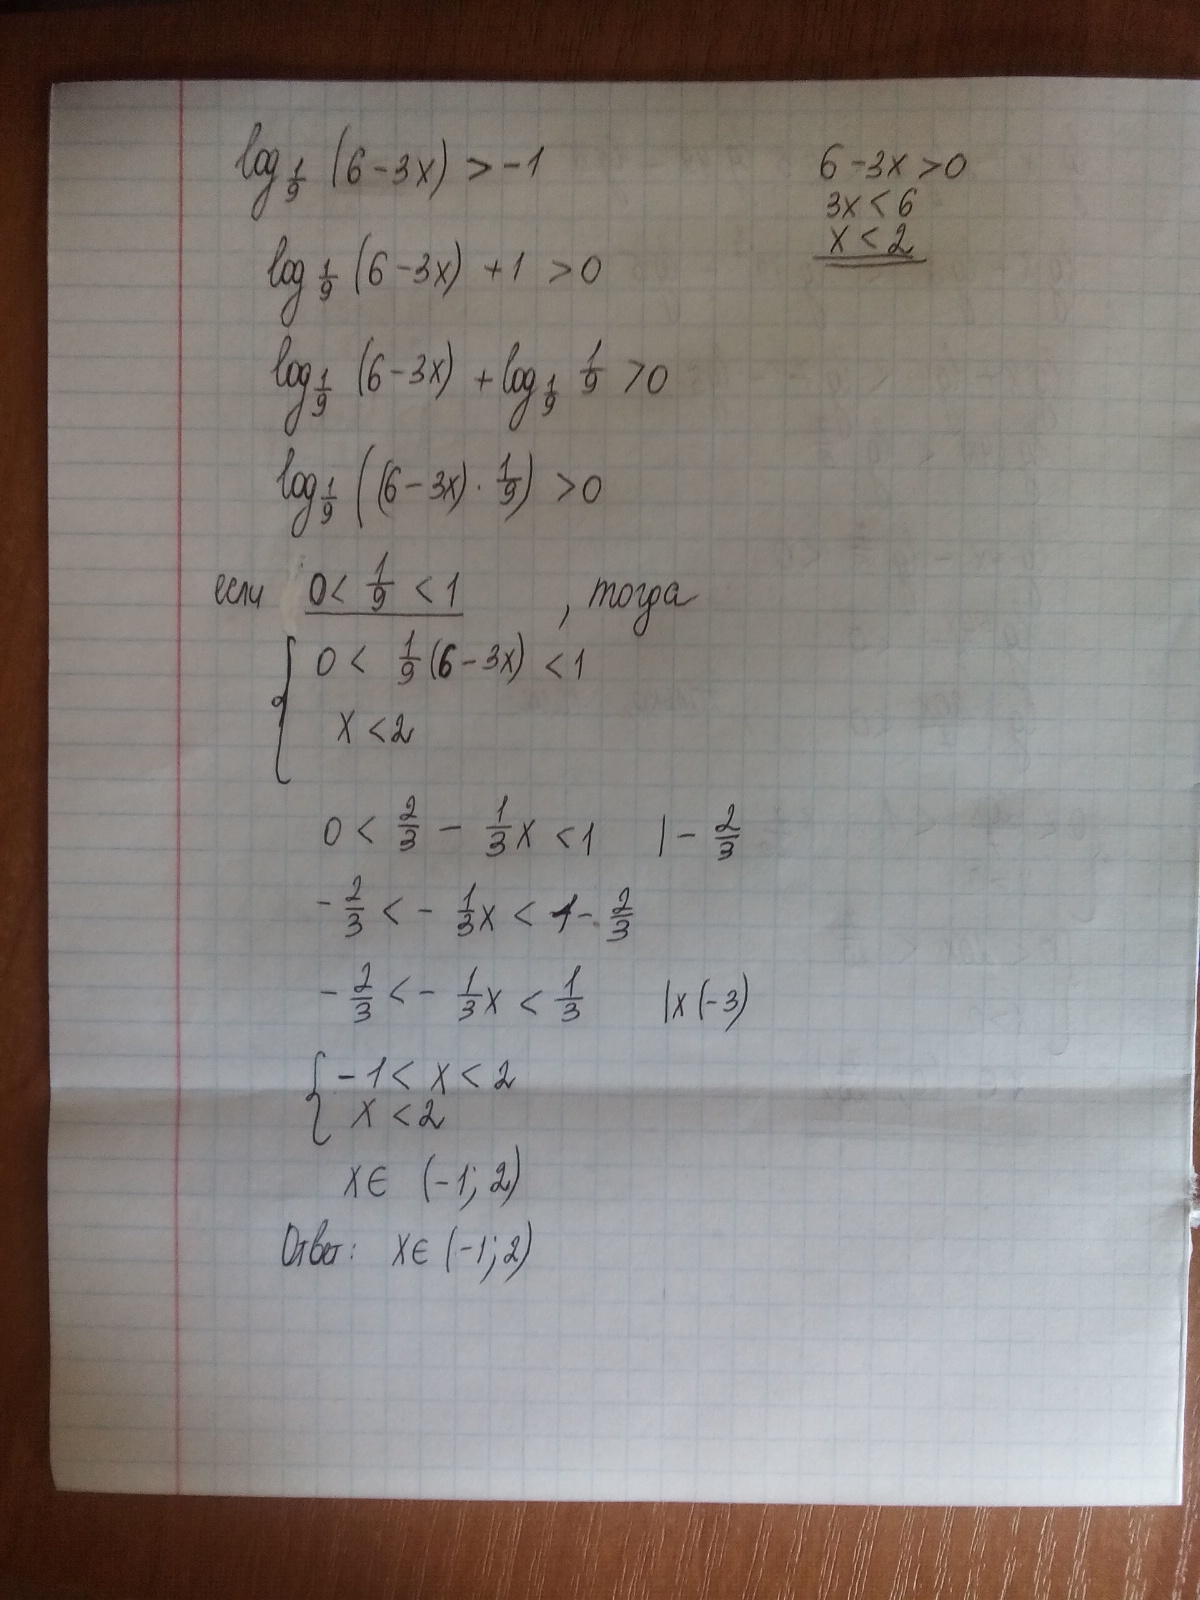 log_{1/9} (6-3x) > -1
6-3x>0
3x<6
x<2
log_{1/9} (6-3x) +1 >0
log_{1/9} (6-3x) + log_{1/9} 1/9 >0
log_{1/9} ((6-3x)·1/9) >0
если 0< 1/9 <1 , тогда
{ 0 < 1/9 (6-3x) <1
x <2
0 < 2/3 - 1/3 x <1 |- 2/3
-2/3 < - 1/3 x < 1 - 2/3
-2/3 < - 1/3 x < 1/3 |x (-3)
{ -1 < x < 2
x <2
x∈ (-1; 2)
Ответ: x∈ (-1; 2)